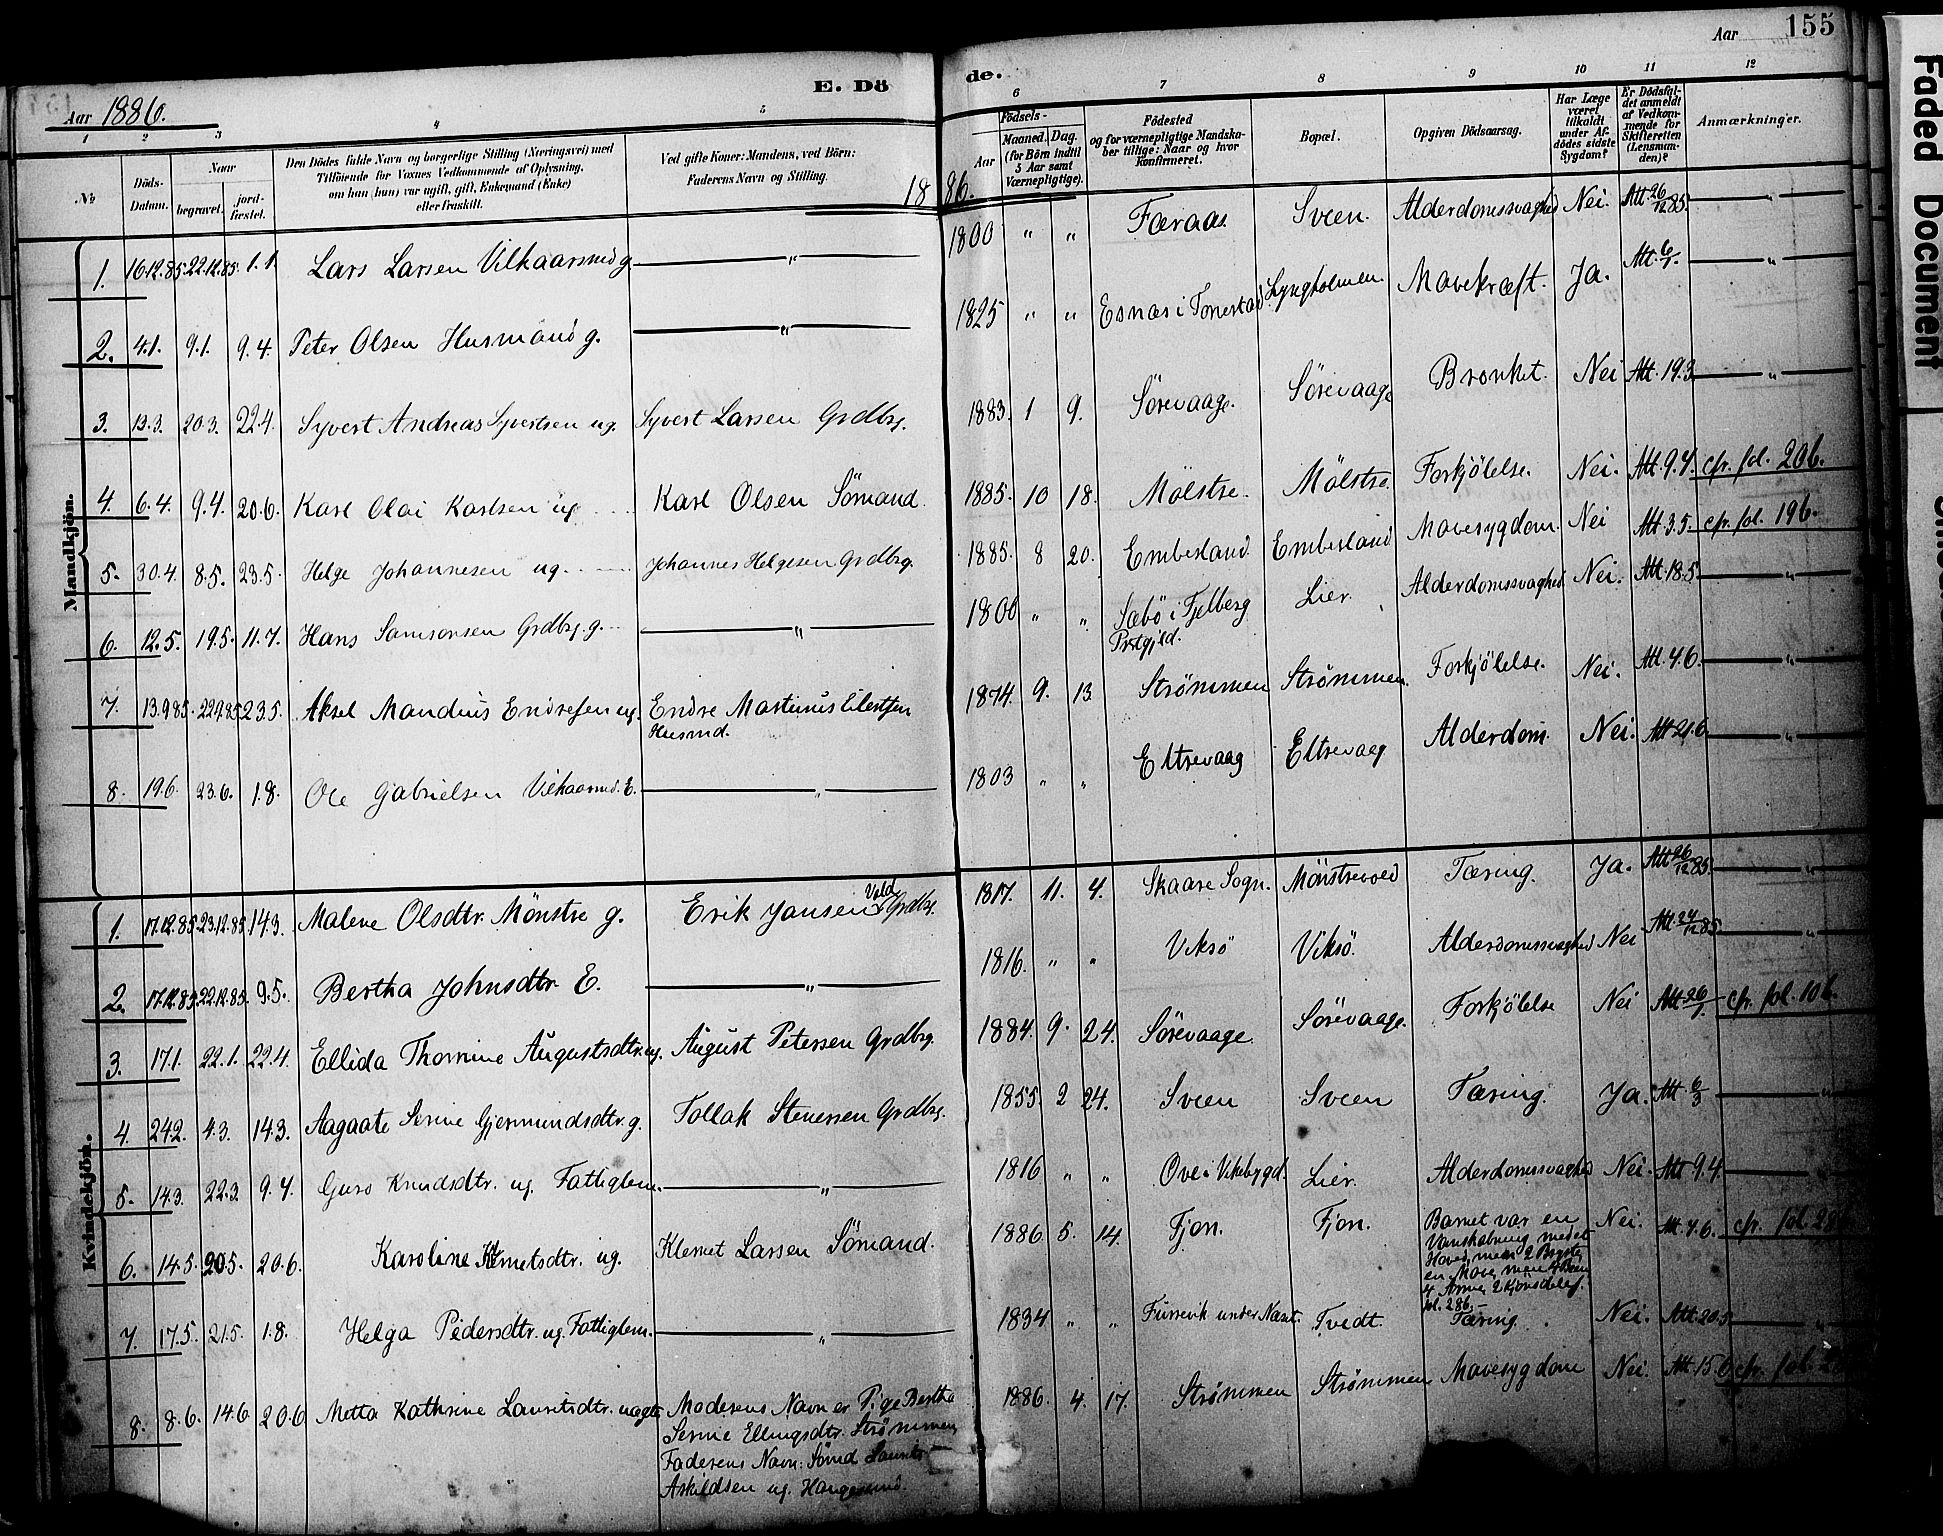 155
Aar 1886.
E. Döde.
Aar
1 2 3 4 5 6 7 8 9 10 11 12
№
Döds-Datum.
Naar
begravet.
jord-fæstet.
Den Dödes fulde Navn og borgerlige Stilling (Næringsvei) med
Tilföiende for Voxnes Vedkommende af Oplysning,
om han (hun) var ugift, gift, Enkemand (Enke)
eller fraskilt.
Ved gifte Koner: Mandens, ved Börn:
Faderens Navn og Stilling.
Födsels-
Aar
Maaned. Dag.
(for Börn indtil
5 Aar samt
Værnepligtige).
Födested
og for værnepligtige Mandska-
ber tillige: Naar og hvor
Konfirmeret.
Bopæl.
Opgiven Dödsaarsag.
Har Læge
været
tilkaldt
under Af-
dödes sidste
Sygdom?
Er Dödsfal-
det anmeldt
af Vedkom-
mende for
Skifteretten
(Lensman-
den)?
Anmærkninger.
1886.
Mandkjön.
1. 16.12.85 22.12.85. 1.1. Lars Larsen Vilkaarsmd g. — " — 1800 " " Færaas Sveen. Alderdomssvaghed Nei. Att. 26/12 85. — " —
2. 4.1. 9.1. 9.4. Peter Olsen Husmand g. — " — 1825 " " Esnæs i Tonestad Lyngholmen Mavekræft. Ja. Att. 6/1. — " —
3. 13.3. 20.3. 22.4. Syvert Andreas Syvertsen ug. Syvert Larsen Grdbrg. 1883. 1 9. Sörevaage. Sörevaage Bronket. Nei Att. 19.3 — " —
4. 6.4. 9.4. 20.6. Karl Olai Karlsen ug Karl Olsen Sömand. 1885. 10 18. Mölstre. Mölstre. Forkjölelse. Nei. Att. 9.4. cfr. fol. 20b.
5. 30.4. 8.5. 23.5. Helge Johannesen ug. Johannes Helgesen Grdbrg. 1885. 8 20. Embesland Embesland Mavesygdom. Nei Att. 3.5. cfr. fol. 19b.
6. 12.5. 19.5. 11.7. Hans Samsonsen Grdbrg. g. — " — 1800 " " Sæbö i Fjelberg Lier. Alderdomssvaghed Nei. Att. 18.5. — " —
Prstgjld.
7. 13.9.85. 22.9.85 23.5. Aksel Mandius Endresen ug. Endre Martinus Eilertsen 1874. 9. 13 Strömmen Strömmen Forkjölelse. Nei. Att. 4.6. — " —
Husmd.
8. 19.6. 23.6. 1.8. Ole Gabrielsen Vilkaarsmd. E. — " — 1803 " " Eltrevaag Eltrevaag Alderdom. Nei. Att 21.6. — " —
Kvindekjön.
1. 17.12.85 23.12.85 14.3. Malene Olsdtr. Mönstre g. Erik Jansen Vold Grdbrg. 1817. 11. 4. Skaare Sogn. Mönstrevold Tæring. Ja. Att 26/12 85. — " —
2. 17.12.85 22.12.85. 9.5. Bertha Johnsdtr. E. — " — 1816. " " Viksö Viksö. Alderdomssvaghed Nei Att. 24/12 85. — " —
3. 17.1. 22.1. 22.4. Ellida Thomine Augustsdtr. ug. August Petersen Grdbrg. 1884. 9. 24. Sörevaage. Sörevaage. Forkjölelse Nei Att. 26/1 cfr. fol. 10b.
4. 24.2. 4.3. 14.3. Aagaate Serine Gjermundsdtr. g. Tollak Stenersen Grdbrg. 1855. 2 24. Sveen Sveen Tæring. Ja. Att. 6/3 — " —
5. 14.3. 22.3. 9.4. Guro Knudsdtr. ug. Fattiglem. — " — 1816 " " Ove i Vikebygd. Lier. Alderdomssvaghed Nei. Att 9.4. — " —
6. 14.5. 20.5. 20.6. Karoline Klemetsdtr. ug. Klemet Larsen Sömand. 1886. 5. 14. Fjon. Fjon. Barnet var en Nei. Att. 4.6. cfr. fol. 28b
Vanskabning med et
Hoved, men 2 Bryste
en Mave, men 4 Ben
4 Arme, 2 Kjönsdele cf.
fol. 28b
7. 17.5. 21.5. 1.8. Helga Pedersdtr. ug. Fattiglem. — " — 1834 " " Furrevik under Næst. Tvedt. Tæring. Nei. Att. 20.5 — " —
8. 8.6. 14.6. 20.6 Metta Kathrine Lauritsdtr. uægte Moderens Navn er Pige Bertha 1886. 4. 17. Strömmen Strömmen Mavesygdom Nei. Att. 15.6 cfr. fol.
Serine Ellingsdtr. Strömmen
Faderens Navn: Sömd Laurits
Askildsen ug. Haugesund
Faded Document